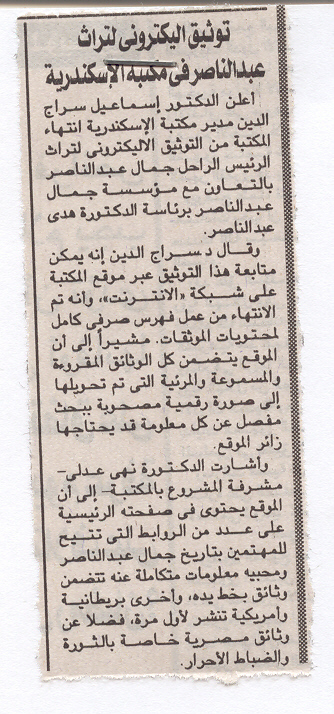 توثيق اليكترونى لتراث
عبدالناصر فى مكتبة الإسكندرية
أعلن الدكتور إسماعيل سراج
الدين مدير مكتبة الإسكندرية انتهاء
المكتبة من التوثيق الاليكترونى لتراث
الرئيس الراحل جمال عبدالناصر
بالتعاون مع مؤسسة جمال
عبدالناصر برئاسة الدكتورة هدى
عبدالناصر.
وقال د. سراج الدين إنه يمكن
متابعة هذا التوثيق عبر موقع المكتبة
على شبكة «الانترنت»، وأنه تم
الانتهاء من عمل فهرس صرفى كامل
لمحتويات الموثقات. مشيراً إلى أن
الموقع يتضمن كل الوثائق المقروءة
والمسموعة والمرئية التى تم تحويلها
إلى صورة رقمية مصحوبة ببحث
مفصل عن كل معلومة قد يحتاجها
زائر الموقع.
وأشارت الدكتورة نهى عدلى-
مشرفة المشروع بالمكتبة- إلى أن
الموقع يحتوى فى صفحته الرئيسية
على عدد من الروابط التى تتيح
للمهتمين بتاريخ جمال عبدالناصر
ومحبيه معلومات متكاملة عنه تتضمن
وثائق بخط يده، وأخرى بريطانية
وأمريكية تنشر لأول مرة، فضلا عن
وثائق مصرية خاصة بالثورة
والضباط الأحرار.